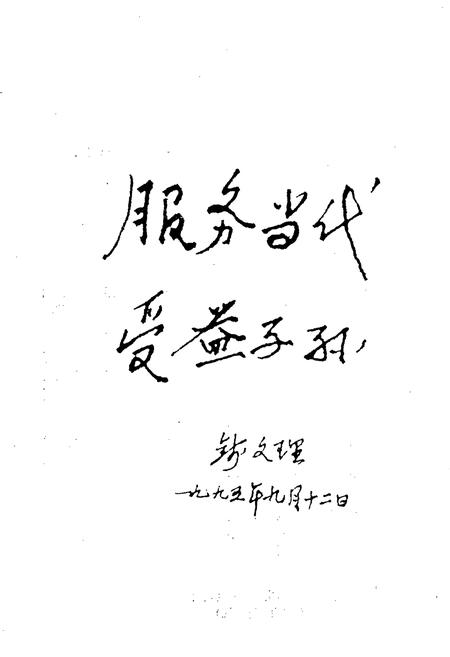 服务当代
受益子孙
钱文理
一九九五年九月十二日